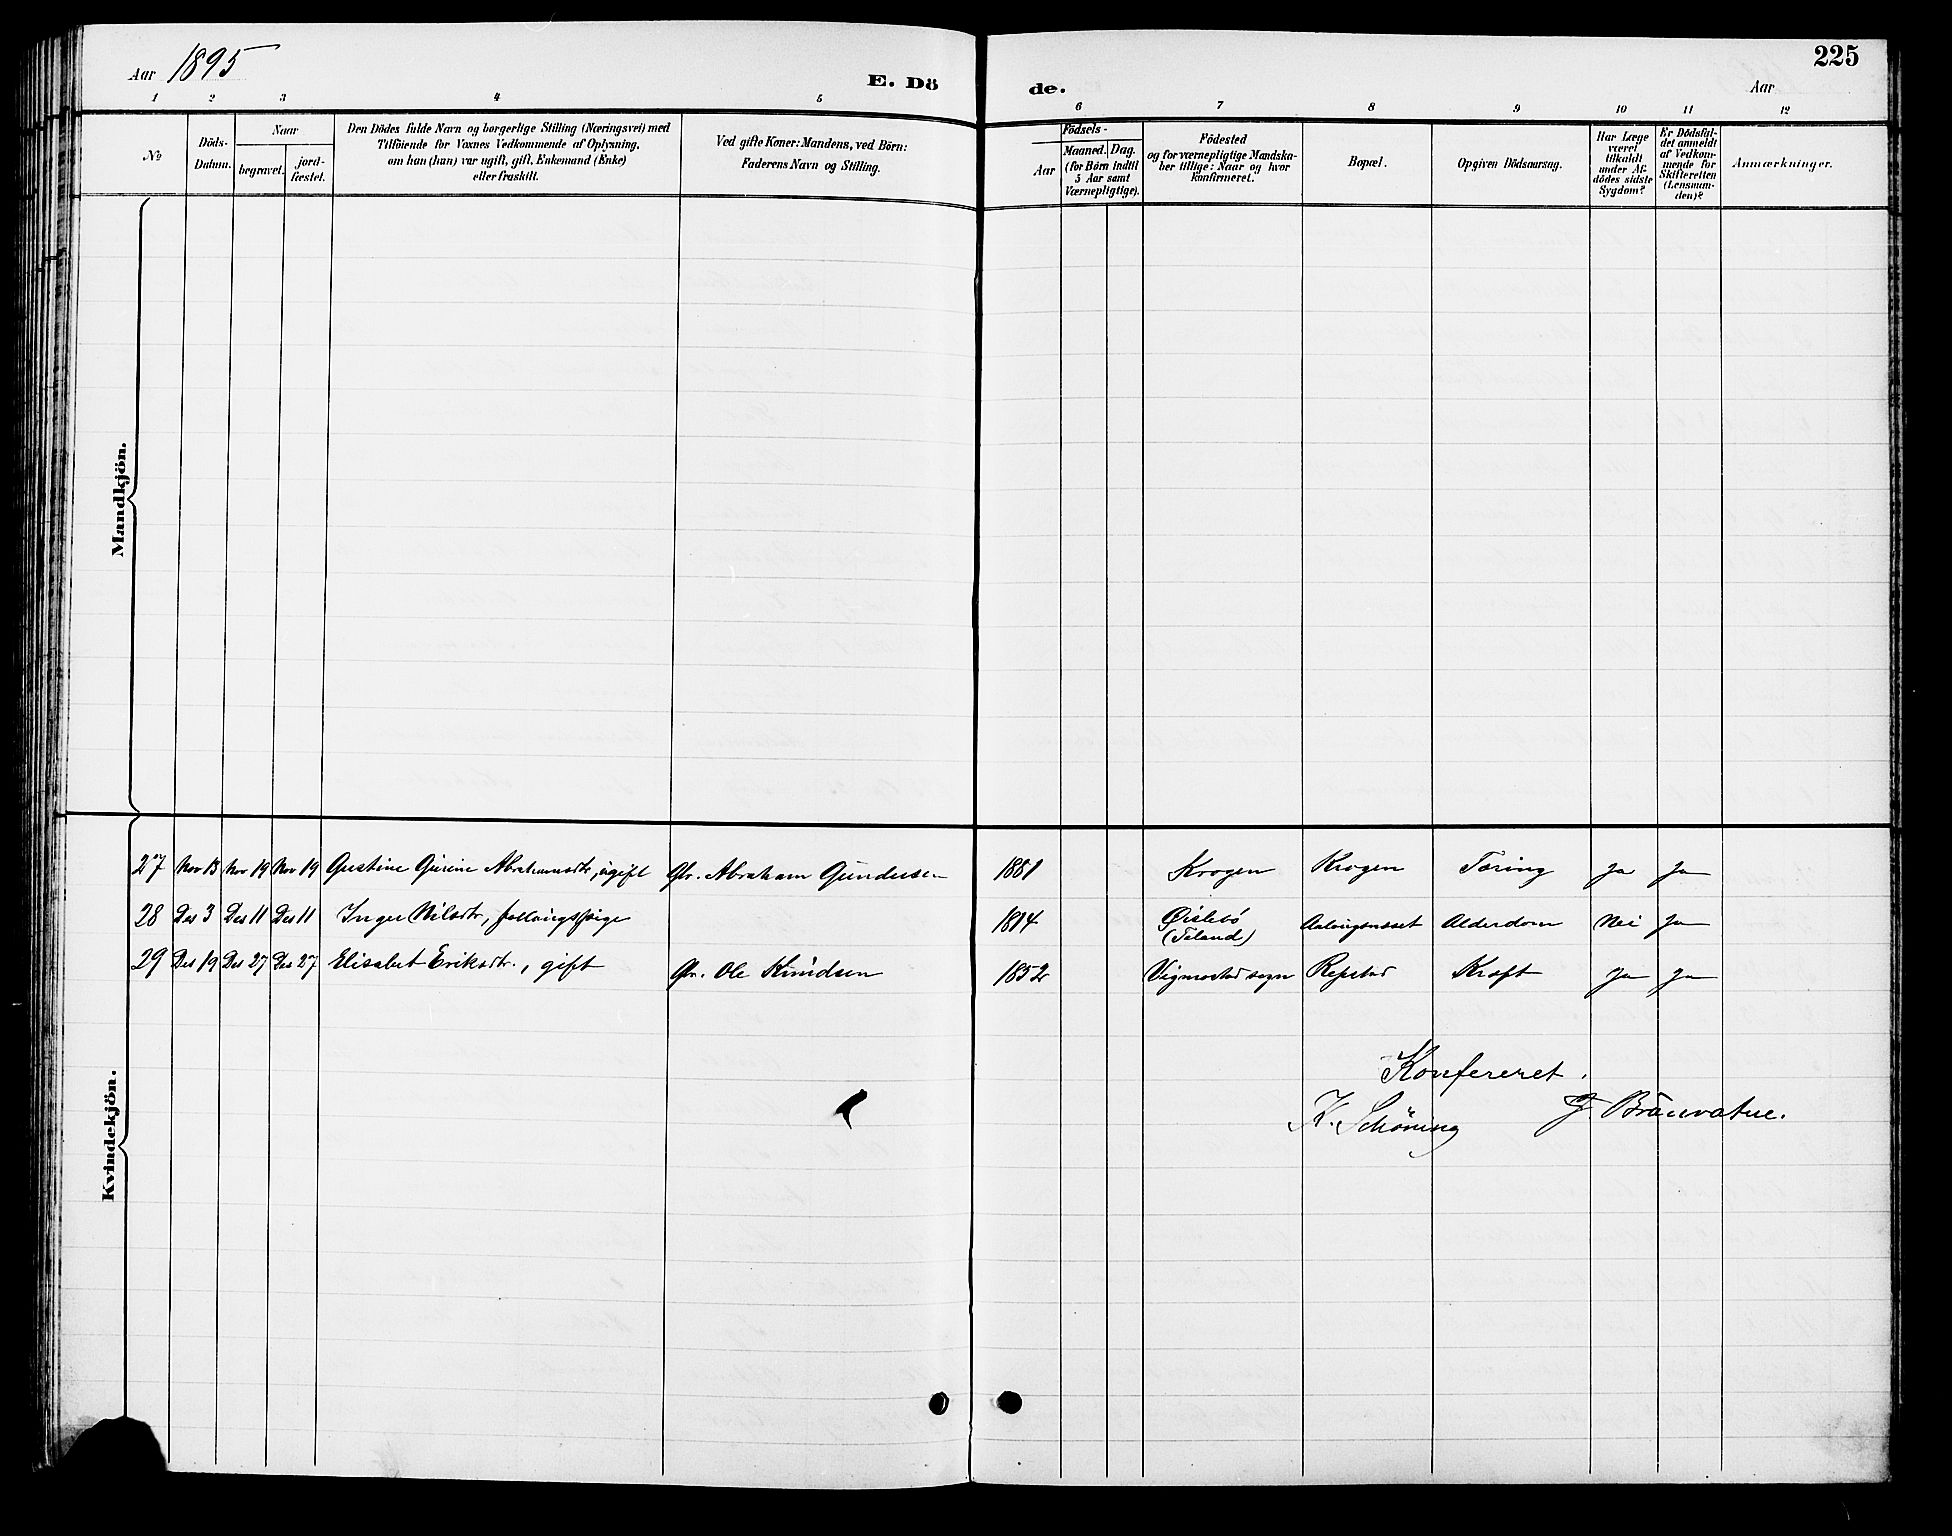 Aar 1895
E. Dö
de.
225
Aar
1 2 3 4 5 6 7 8 9 10 11 12
No
Döds-
Datum.
Naar
begravet.
jord-
fæstet.
Den Dödes fulde Navn og borgerlige Stilling (Næringsvei) med
Tilföiende for Voxnes Vedkommende af Oplysning,
om han (hun) var ugift, gift, Enkemand (Enke)
eller fraskilt.
Ved gifte Koner: Mandens, ved Börn:
Faderens Navn og Stilling.
Födsels-
Aar
Maaned. Dag.
(for Börn indtil
5 Aar samt
Værnepligtige).
Födested
og for værnepligtige Mandska-
ber tillige: Naar og hvor
konfirmeret.
Bopæl.
Opgiven Dödsaarsag.
Har Læge
været
tilkaldt
under Af-
dödes sidste
Sygdom?
Er Dödsfal-
det anmeldt
af Vedkom-
mende for
Skifteretten
(Lensman-
den)?
Anmærkninger.
Mandkjön.
Kvindekjön.
27 Nov 13 Nov 19 Nov 19 Gustine Gurine Abrahamsdtr, ugift Gbr. Abraham Gundersen 1881 Krogen Krogen Tæring Ja Ja
28 Des 3 Des 11 Des 11 Inger Nilsdtr, 1814 Øislebö Alderdom Nei Ja
(Taland)
29 Des 19 Des 27 Des 27 Elisabet Eriksdtr., gift Gbr. Ole Knudsen 1852 Vigmostad sogn Repstad Kræft Ja Ja
Konfereret.
K. Schöning